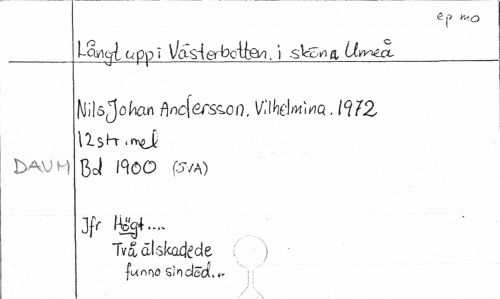 ep mo
Långt uppi Västerbotten. i sköna Umeå
Nils Johan Andersson. Vilhelmina. 1972
12 str. mel
DAUM Bd 1900 (SVA)
Jfr Högt....
Två älskadede
funno sin död...